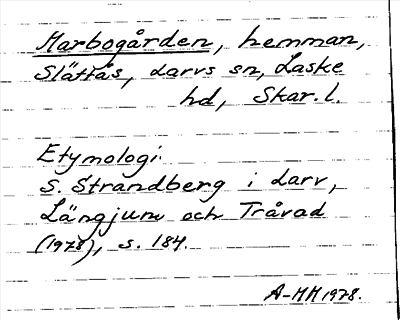 Marbogården, hemman,
Slättås, Larvs sn, Laske
hd, Skar.l.
Etymologi:
S. Strandberg i Larv,
Längjum och Tråvad
(1978), s. 184.
A-MH 1978.